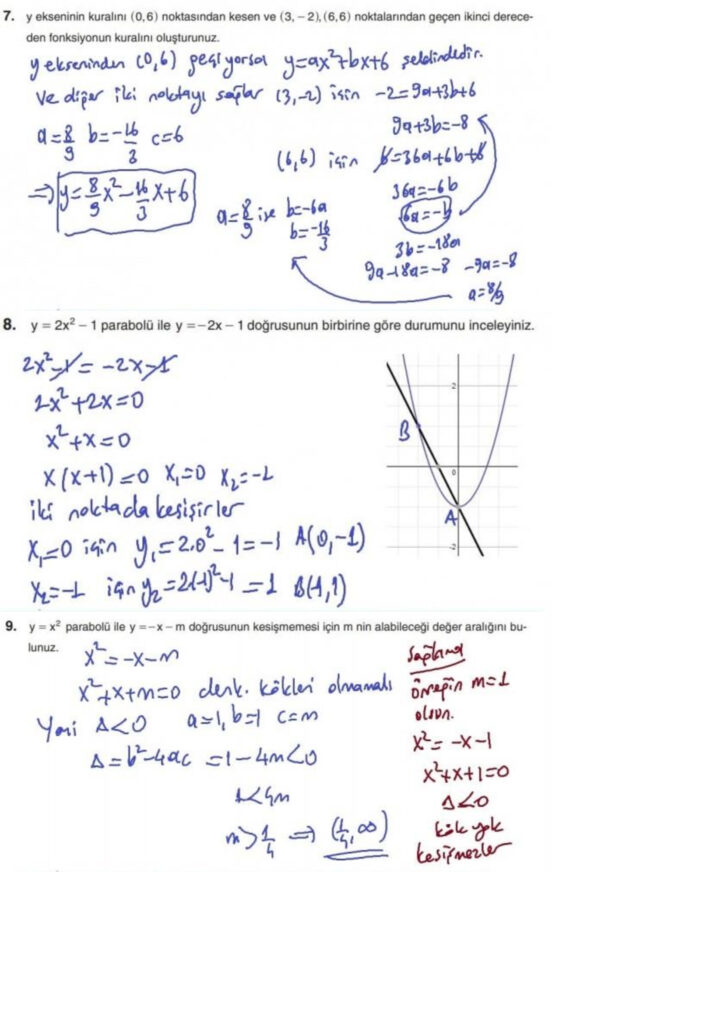 7. y ekseninin kuralını (0,6) noktasından kesen ve (3, – 2), (6,6) noktalarından geçen ikinci derece-
den fonksiyonun kuralını oluşturunuz.
y ekseninden (0,6) geçiyorsa y=ax²+bx+6 şeklindedir.
Ve diğer iki noktayı sağlar (3,-2) için -2=9a+3b+6
9a+3b=-8
a=8/9 b=-16/3 c=6
(6,6) için 6=36a+6b+6
36a=-6b
6a=-b
⇒ y=8/9x²-16/3x+6
a=8/9 ise b=-6a
b=-16/3
3b=-18a
9a-18a=-8 -9a=-8
a=8/9
8. y = 2x² – 1 parabolü ile y = – 2x – 1 doğrusunun birbirine göre durumunu inceleyiniz.
2x²-1=-2x-1
2x²+2x=0
x²+x=0
x(x+1)=0 x₁=0 x₂=-1
iki noktada kesişirler
x₁=0 için y₁=2.0²-1=-1 A(0,-1)
x₂=-1 için y₂=2(-1)²-1=1 B(-1,1)
2
B
0
A
-2
9. y = x² parabolü ile y = – x – m doğrusunun kesişmemesi için m nin alabileceği değer aralığını bu-
lunuz.
x²=-x-m
x²+x+m=0 denk. kökleri olmamalı
Yani Δ<0 a=1, b=1 c=m
Δ=b²-4ac =1-4m<0
1<4m
m>1/4 ⇒ (1/4,∞)
Sağlama
örneğin m=1
olsun.
x²=-x-1
x²+x+1=0
Δ<0
kök yok
kesişmezler